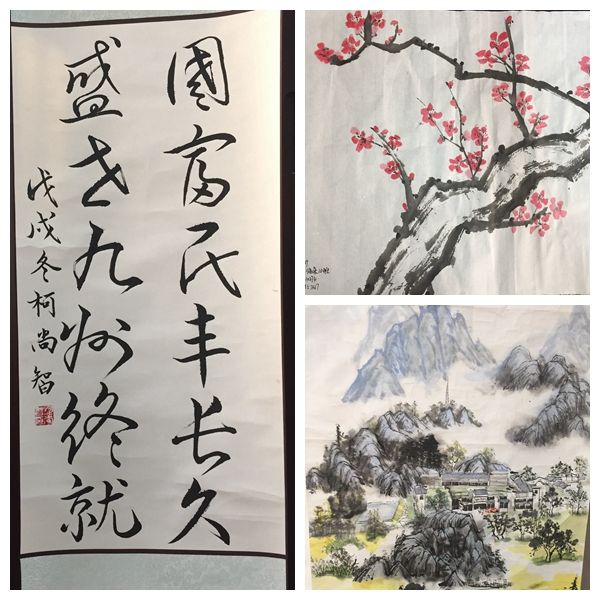 國富民丰长久
盛世九州终就
戊戌冬柯尚智